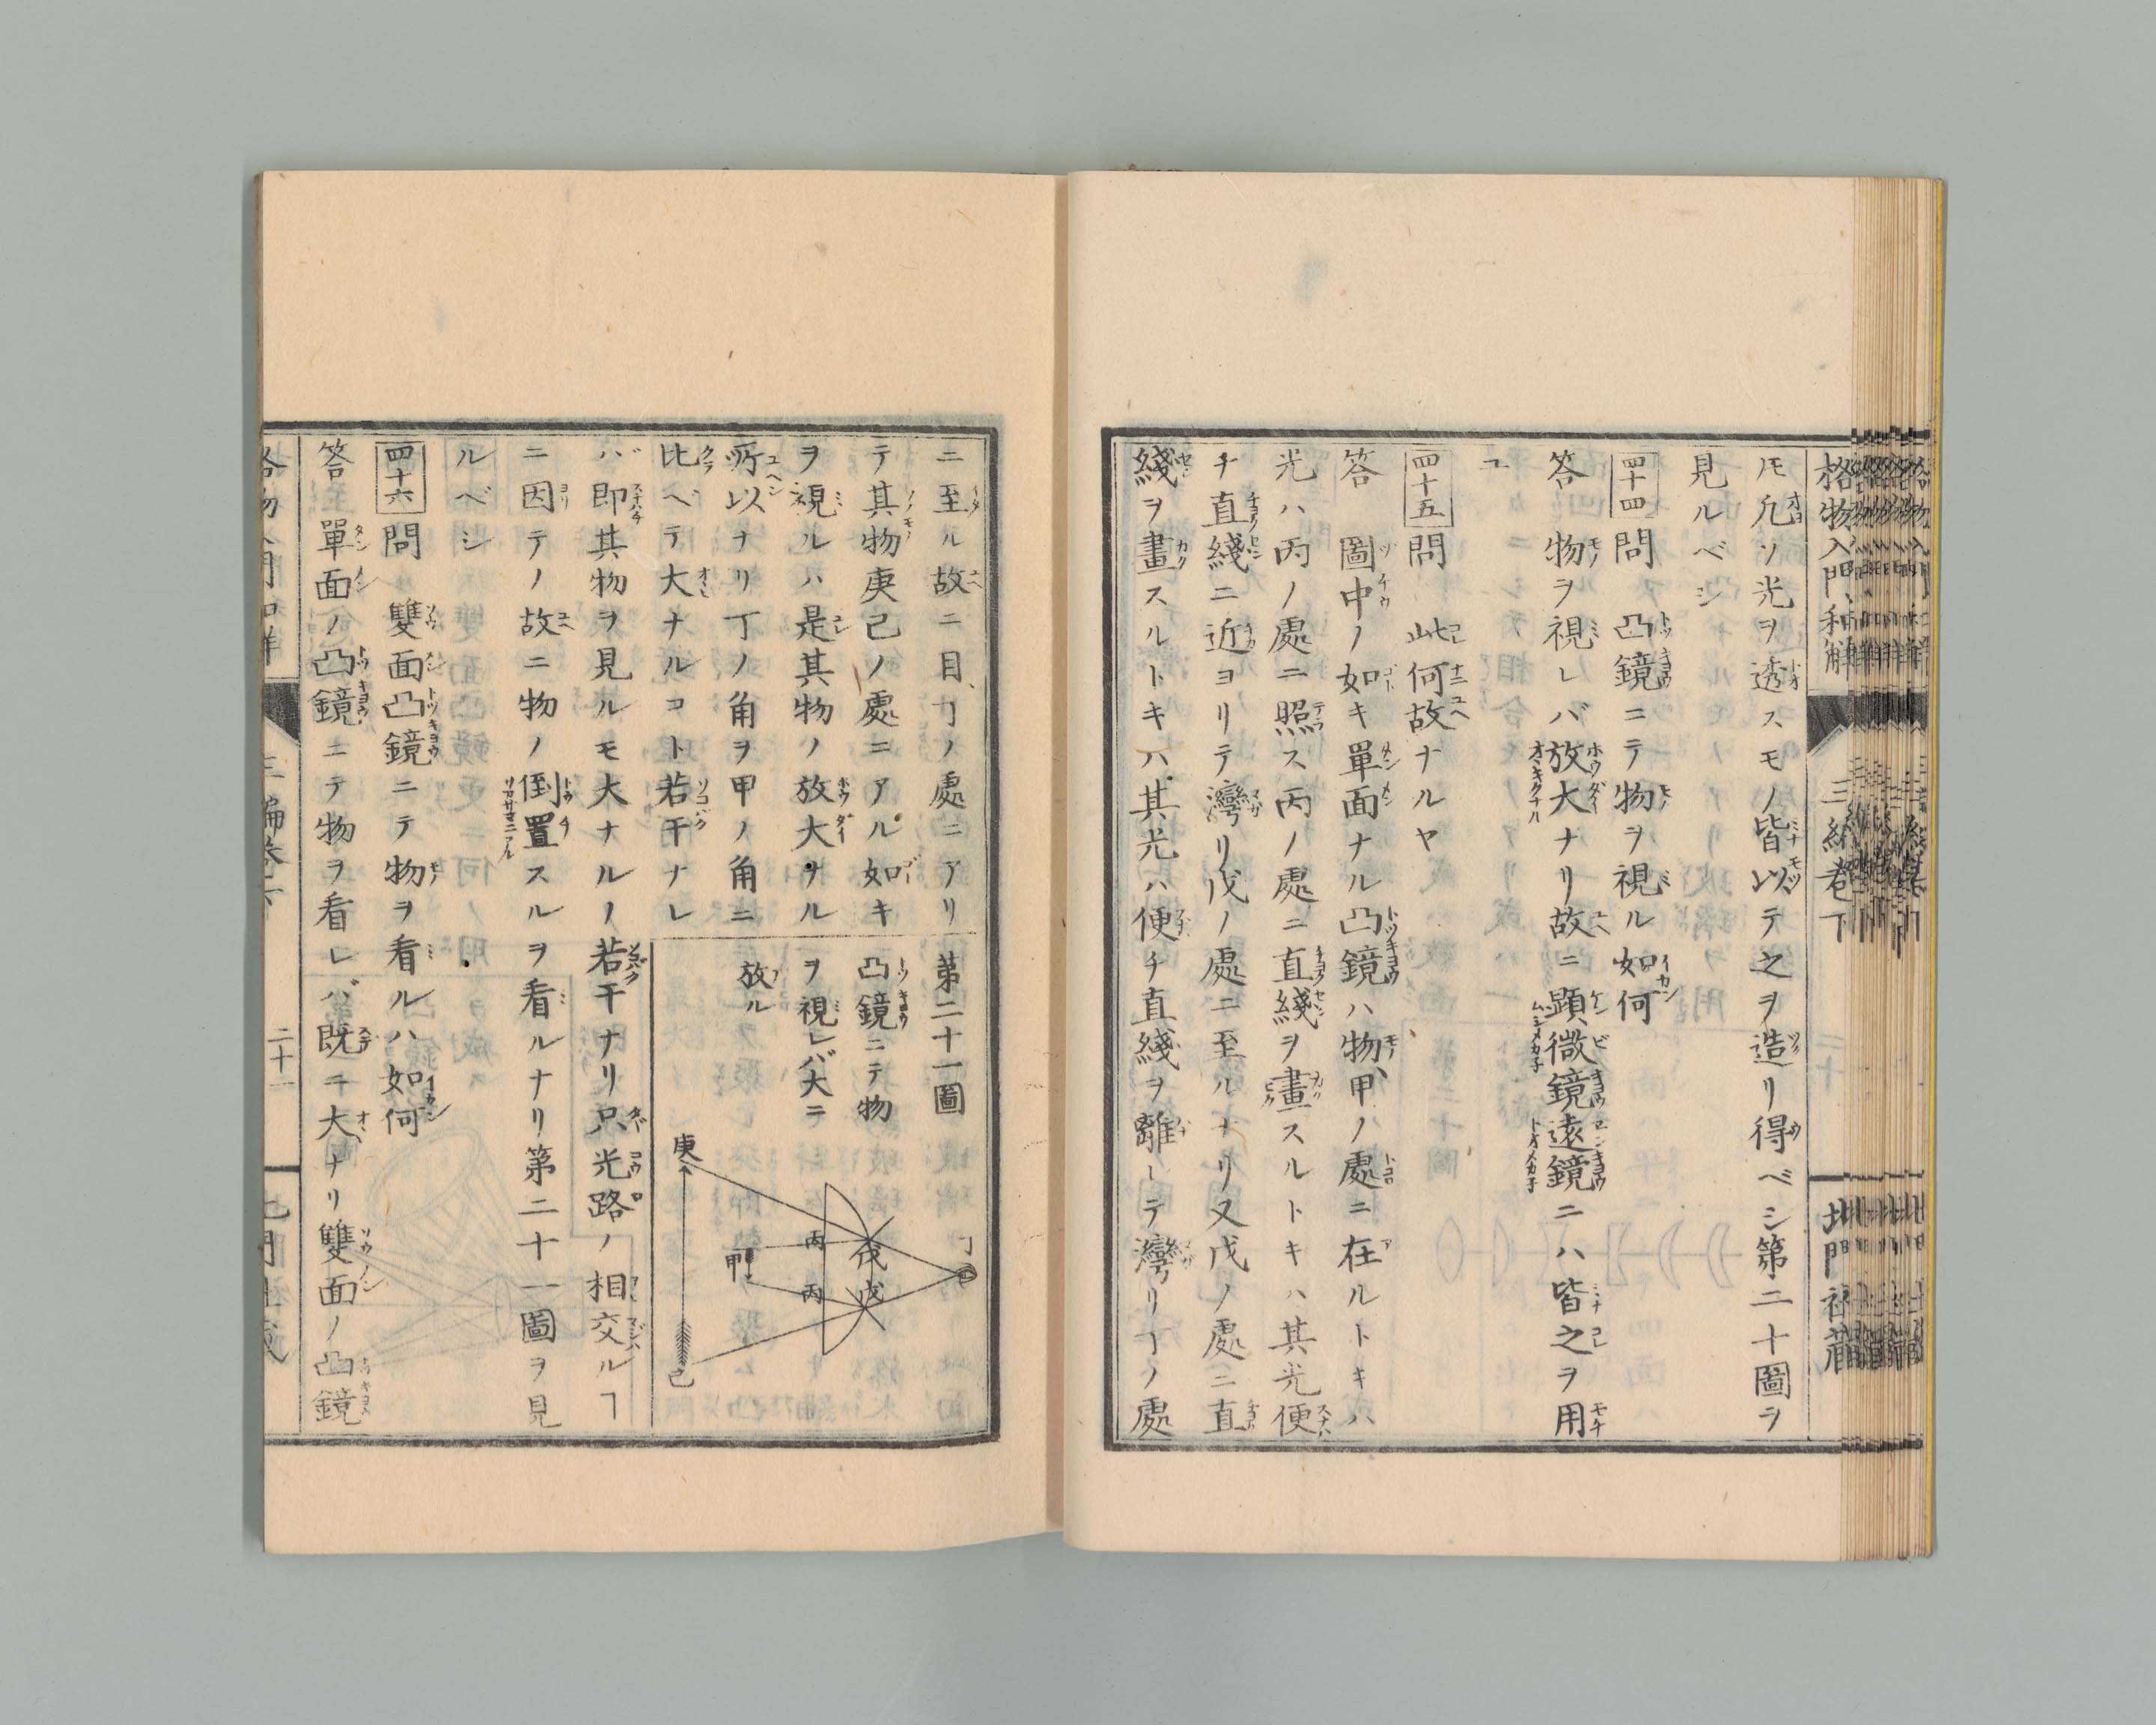 格物入門和解 三編卷下 北門社藏
𪜈凡ソ光ヲ透スモノ皆以テ之ヲ造リ得ベシ第二十圖ヲ
見ルベシ
四十四 問 凸鏡ニテ物ヲ視ル如何
答 物ヲ視レバ放大ナリ故ニ顕微鏡遠鏡ニハ皆之ヲ用
ユ
四十五 問 此何故ナルヤ
答 圖中ノ如キ單面ナル凸鏡ハ物甲ノ處ニ在ルトキハ
光ハ丙ノ處ニ照ス丙ノ處ニ直綫ヲ畫スルトキハ其光便
チ直綫ニ近ヨリテ灣リ戊ノ處ニ至ルナリ又戊ノ處ニ直
綫ヲ畫スルトキハ其光ハ便チ直綫ヲ離レテ灣リ丁ノ處
ニ至ル故ニ目丁ノ處ニアリ
テ其物庚己ノ處ニアル如キ
ヲ視ルハ是其物ノ放大ナル
所以ナリ丁ノ角ヲ甲ノ角ニ
比ベテ大ナルコト若干ナレ
バ即其物ヲ見ルモ大ナルノ若干ナリ只光路ノ相交ルヿ
ニ因テノ故ニ物ノ倒置スルヲ看ルナリ第二十一圖ヲ見
ルベシ
第二十一圖
凸鏡ニテ物
ヲ視レバ大ニ
放ル
丁
戊 戊
丙 丙
甲
庚
己
四十六 問 雙面凸鏡ニテ物ヲ看ルハ如何
答 單面ノ凸鏡ニテ物ヲ看レバ既ニ大ナリ雙面ノ凸鏡
二十一